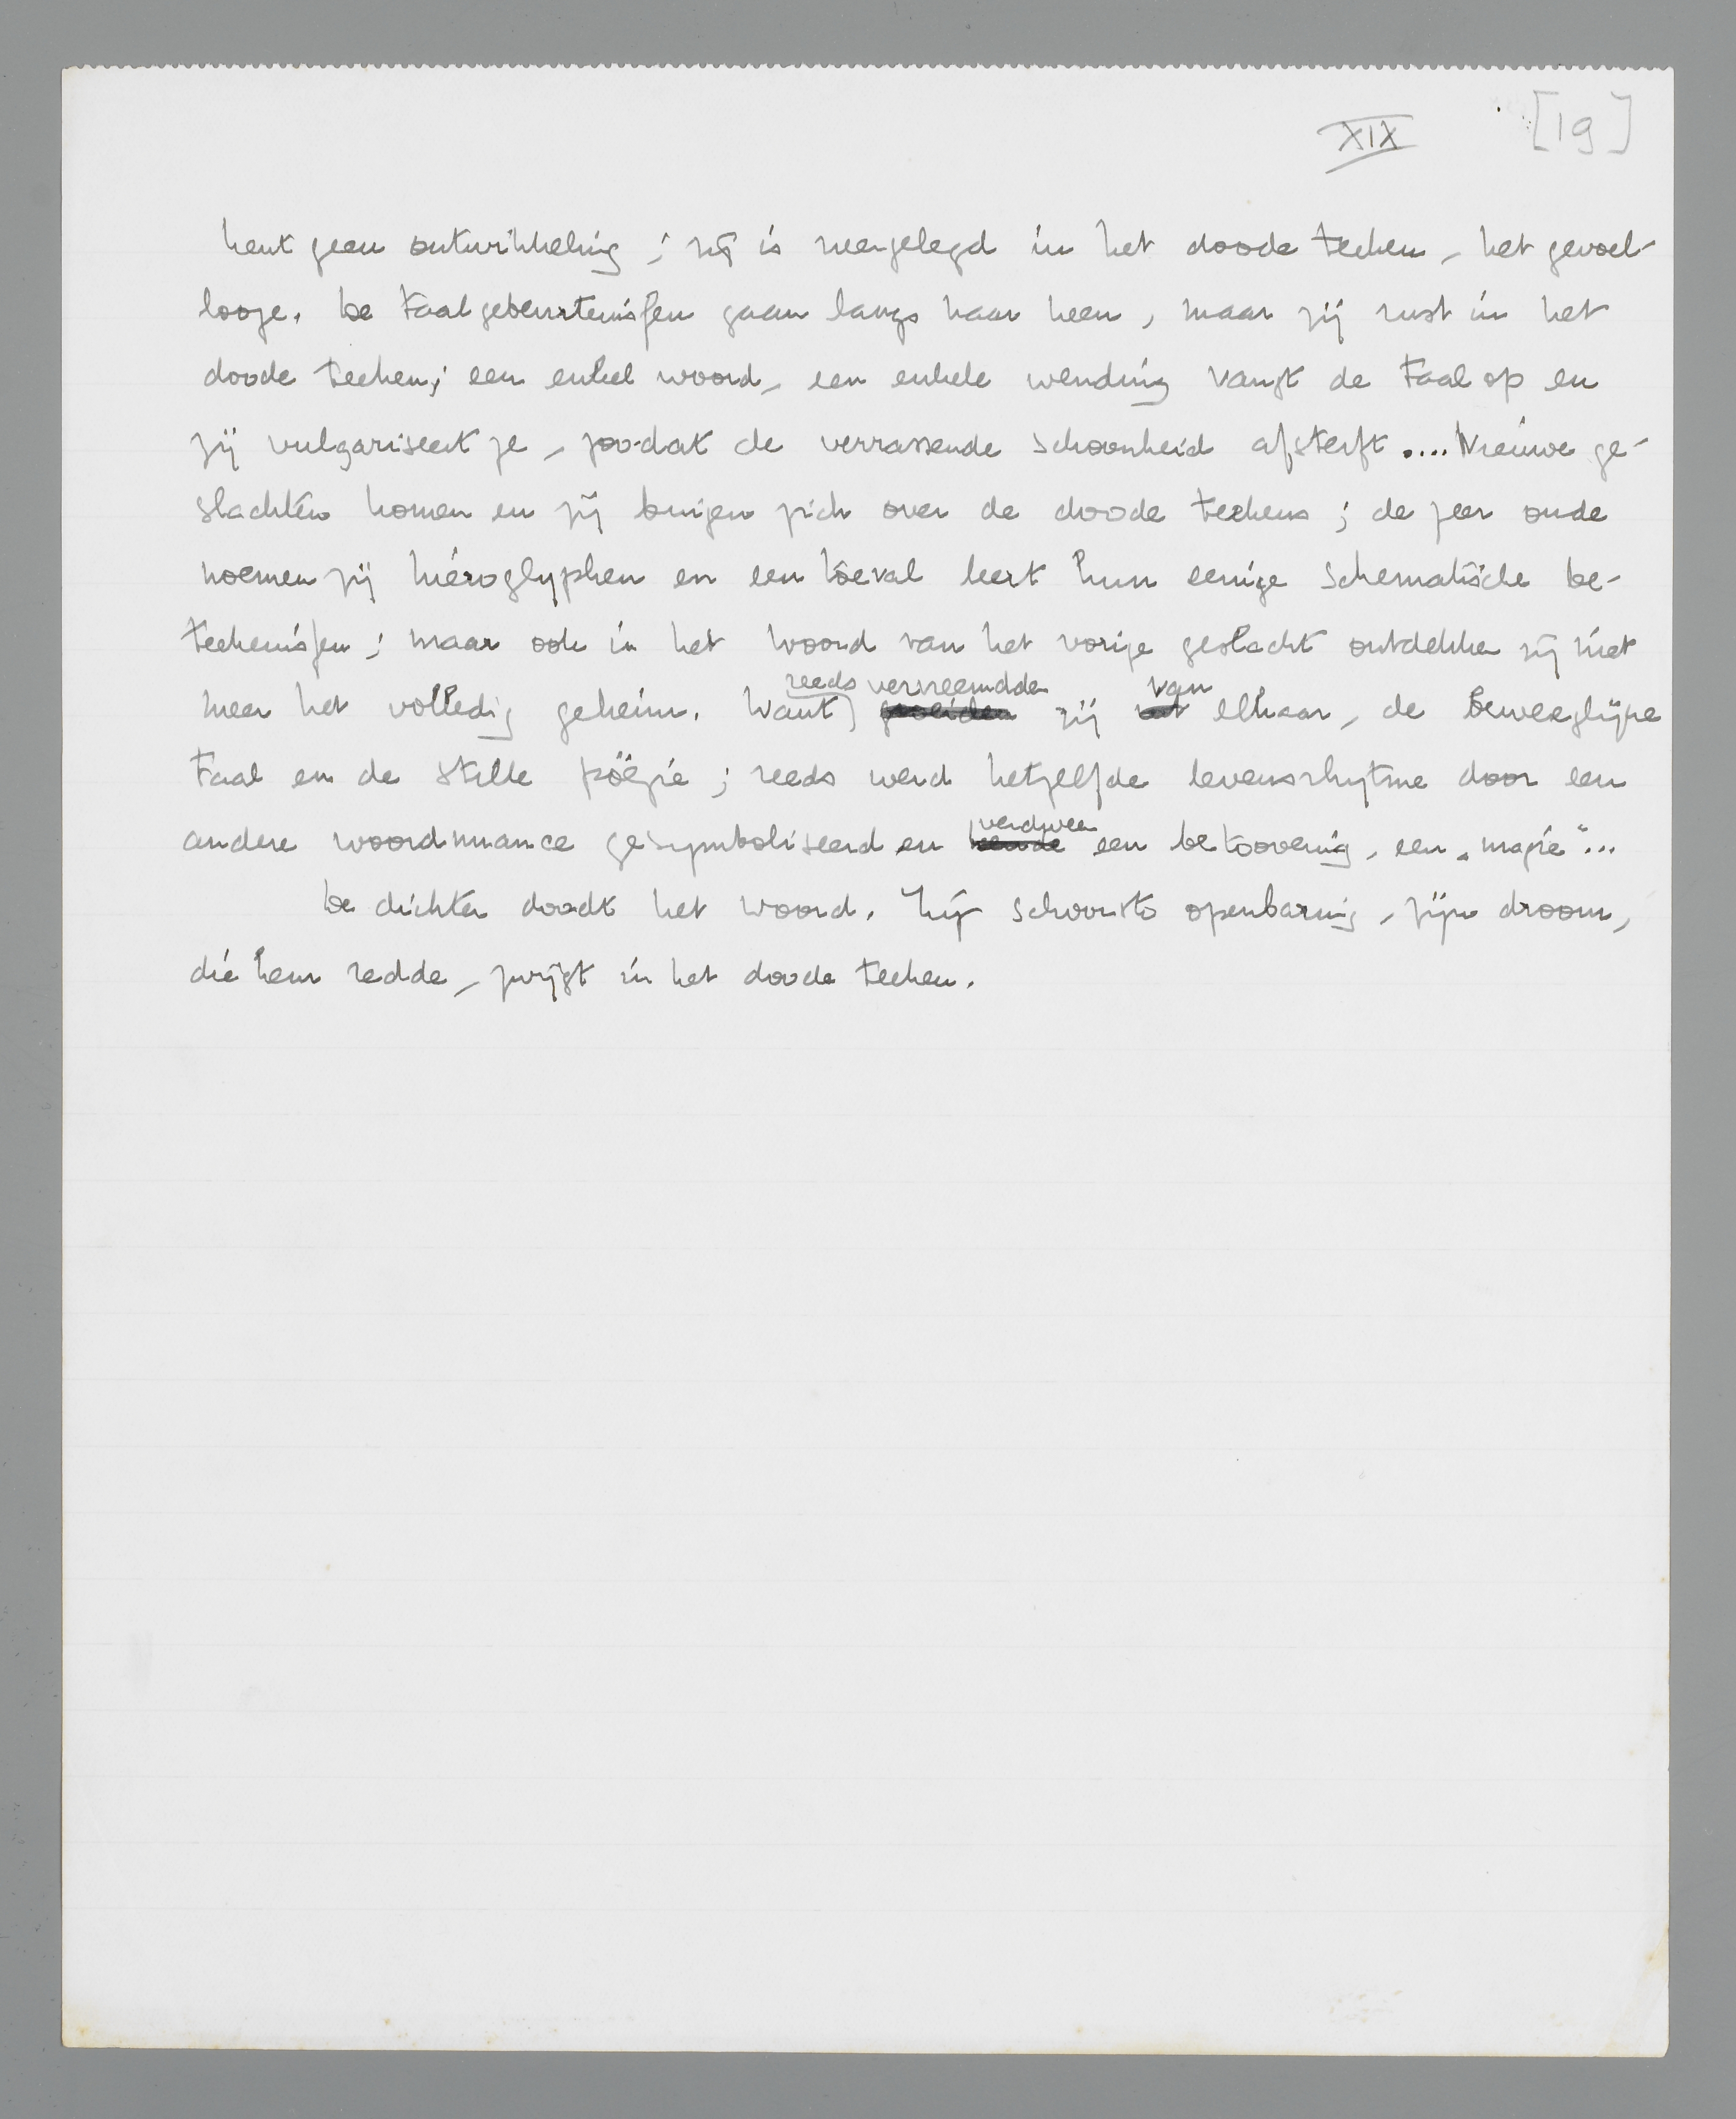 XIX [19]
kent geen ontwikkeling; zij is neergelegd in het doode teeken, het gevoel-
looze. De taalgebeurtenissen gaan langs haar heen, maar zij rust in het
doode teeken; een enkel woord, een enkele wending vangt de taal op en
zij vulgariseert ze, zoodat de verrassende schoonheid afsterft .... Nieuwe ge-
slachten komen en zij buigen zich over de doode teekens; de zeer oude
noemen zij hiëroglyphen en een toeval leert hun eenige schematische be-
teekenissen; maar ook in het woord van het vorige geslacht ontdekken zij niet
meer het volledig geheim. Want reeds vervreemdden zij van elkaar, de beweeglijke
taal en de stille poëzie; reeds werd hetzelfde levensrhytme door een
andere woordnuance gesymboliseerd en verdween een betoovering, een „magie"...
De dichter doodt het woord. Zijn schoonste openbaring, zijn droom,
die hem redde, zwijgt in het doode teeken.